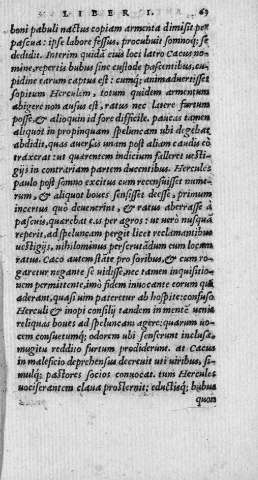 LIBER I. 69
boni pabuli nactus copiam armenta dimisit per
pascua: ipse labore fessus, procubuit somnoq; se
dedidit. Interim quidā eius loci latro Cacus no
mine, repertis bubus sine custode pascentibus, cu
pidine earum captus est: cumq; animaduertisset
sopitum Herculem, totum quidem armentum
abigere non ausus est, ratus nec latere furtum
posse, & alioquin id fore difficile. paucas tamen
aliquot in propinquam speluncam ubi degebat
abdidit, quas auersas unam post aliam caudis cō
traxerat: ut quærentem indicium falleret uesti-
gijs in contrariam partem ducentibus. Hercules
paulo post somno excitus cum recensuisset nume-
rum, & aliquot boues sensisset deesse, primum
incertus quò deuenerint, & ratus aberrasse à
pascuis, quærebat eas per agros: ut uerò nusquā
reperit, ad speluncam pergit licet reclamantibus
uestigijs, nihilominus perscrutādum eum locum
ratus. Caco autem stāte pro foribus, & cum ro-
garetur negante se uidisse, nec tamen inquisitio-
nem permittente, imò fidem innocante eorum qui
aderant, quasi uim pateretur ab hospite: confuso
Herculi & inopi consilij tandem in mentē uenit
reliquas boues ad speluncam agere: quarum uo-
cem consuetumq; odorem ubi senserunt inclusæ,
mugitu reddito furtum prodiderunt. at Cacus
in maleficio deprehensus decreuit uti uiribus, si-
mulq; pastores socios conuocat. tum Hercules
uociferantem claua prosternit: eductisq; bubus
quon